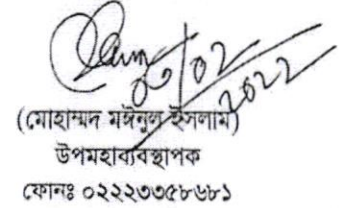 ০৩/০২/২০২২
(মোহাম্মদ মঈনুল ইসলাম)
উপমহাব্যবস্থাপক
ফোনঃ ০২২২৩৩৫৮৬৮১